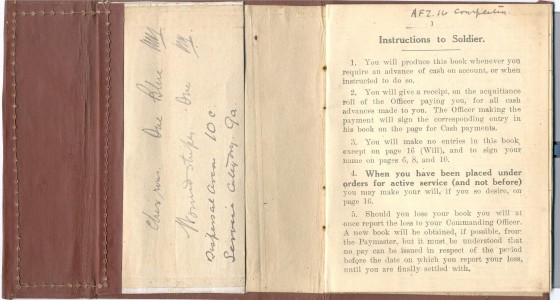 One Blue
Wound stripes One
Dispersal Area 10c
Service Category
A.F.Z. 16
Instructions to Soldier.
1. You will produce this book whenever you
require an advance of cash on account, or when
instructed to do so.
2. You will give a receipt, on the acquittance
roll of the Officer paying you, for all cash
advances made to you. The Officer making the
payment will sign the corresponding entry in
his book on the page for Cash payments.
3. You will make no entries in this book,
except on page 16 (Will), and to sign your
name on pages 6, 8, and 10.
4. When you have been placed under
orders for active service (and not before)
you may make your will, if you so desire, on
page 16.
5. Should you lose your book you will at
once report the loss to your Commanding Officer.
A new book will be obtained, if possible, from
the Paymaster, but it must be understood that
no pay can be issued in respect of the period
before the date on which you report your loss,
until you are finally settled with.